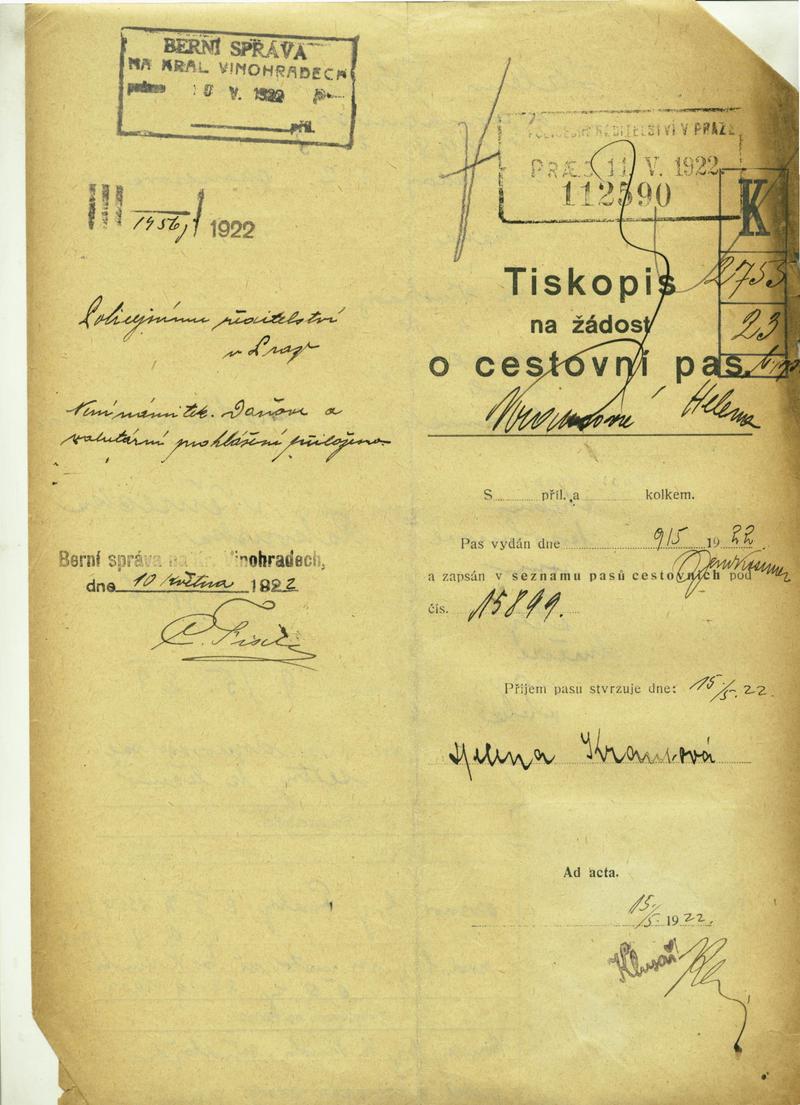 BERNÍ SPRÁVA
NA KRÁL VINOHRADECH
10 V. 1922
příl.
III 1956/1 1922
Policejnímu ředitelství
v Praze
Není námitek. Daňové a
valutární prohlášení přiloženo
Berní správa na Kr. Vinohradech,
dne 10 května 1922
POLICEJNÍ ŘEDITELSTVÍ V PRAZE
PRÆS 11. V. 1922
112590
K
2755
23
Tiskopis
na žádost
o cestovní pas.
Krausová Helena
S příl. a kolkem.
Pas vydán dne 9/5 1922
a zapsán v seznamu pasů cestovních pod
čís. 15899.
Příjem pasu stvrzuje dne: 15./5. 22.
Helena Krausová
Ad acta.
15./5. 1922.